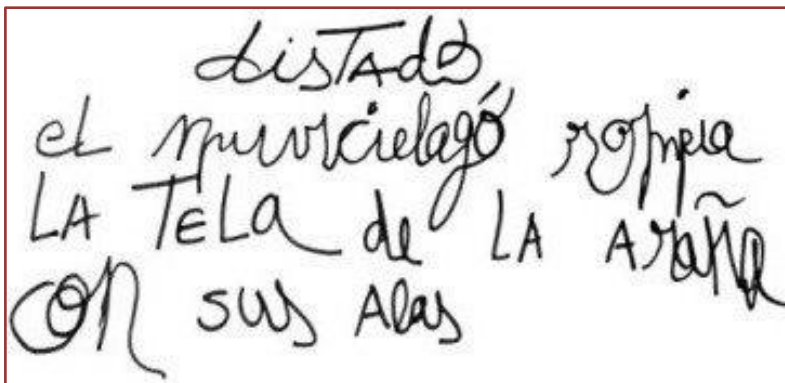 disTAdo
eL murcielagó rompia
LA TELa de LA Araña
con sus Alas